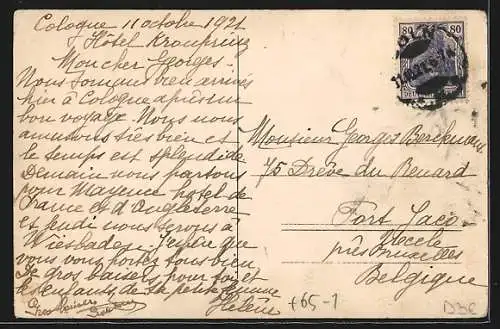 Cologne 11 octobre 1921
Hôtel Kronprinz
Mon cher Georges.
Nous sommes bien arrivés
hier à Cologne après un
bon voyage. Nous nous
amusons très bien et
le temps est splendide
Demain nous partons
pour Mayence hotel de
France et d'Angleterre
et jeudi nous serons à
Wiesbaden. J'espère que
vous vous portez tous bien
De gros baisers pour toi et
les enfants de ta petite femme
Hélène
Gros baisers
80 80
Monsieur Georges Berckmans
75 Drève du Renard
Fort Jaco
Uccle
près Bruxelles
Belgique
+65-1
D3C